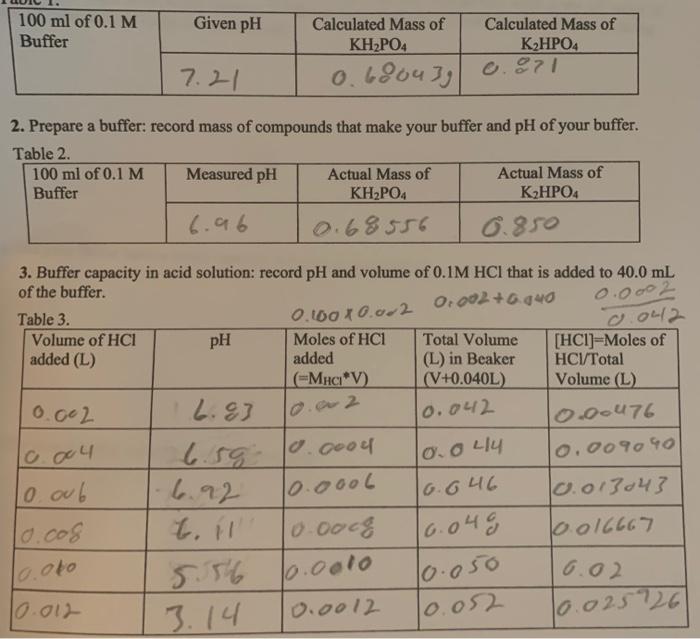 100 ml of 0.1 M Buffer Given pH Calculated Mass of KH₂PO₄ Calculated Mass of K₂HPO₄
7.21 0.68043g 0.871
2. Prepare a buffer: record mass of compounds that make your buffer and pH of your buffer.
Table 2.
100 ml of 0.1 M Buffer Measured pH Actual Mass of KH₂PO₄ Actual Mass of K₂HPO₄
6.96 0.68556 0.850
3. Buffer capacity in acid solution: record pH and volume of 0.1M HCl that is added to 40.0 mL
of the buffer.
0.100 x 0.002 0.002+0.040 0.0002
0.042
Table 3.
Volume of HCl added (L) pH Moles of HCl added (=M_HCl*V) Total Volume (L) in Beaker (V+0.040L) [HCl]=Moles of HCl/Total Volume (L)
0.002 6.83 0.002 0.042 0.00476
0.004 6.58 0.0004 0.044 0.009090
0.006 6.92 0.0006 0.046 0.013043
0.008 6.11 0.0008 0.048 0.016667
0.010 5.56 0.0010 0.050 0.02
0.012 3.14 0.0012 0.052 0.025926